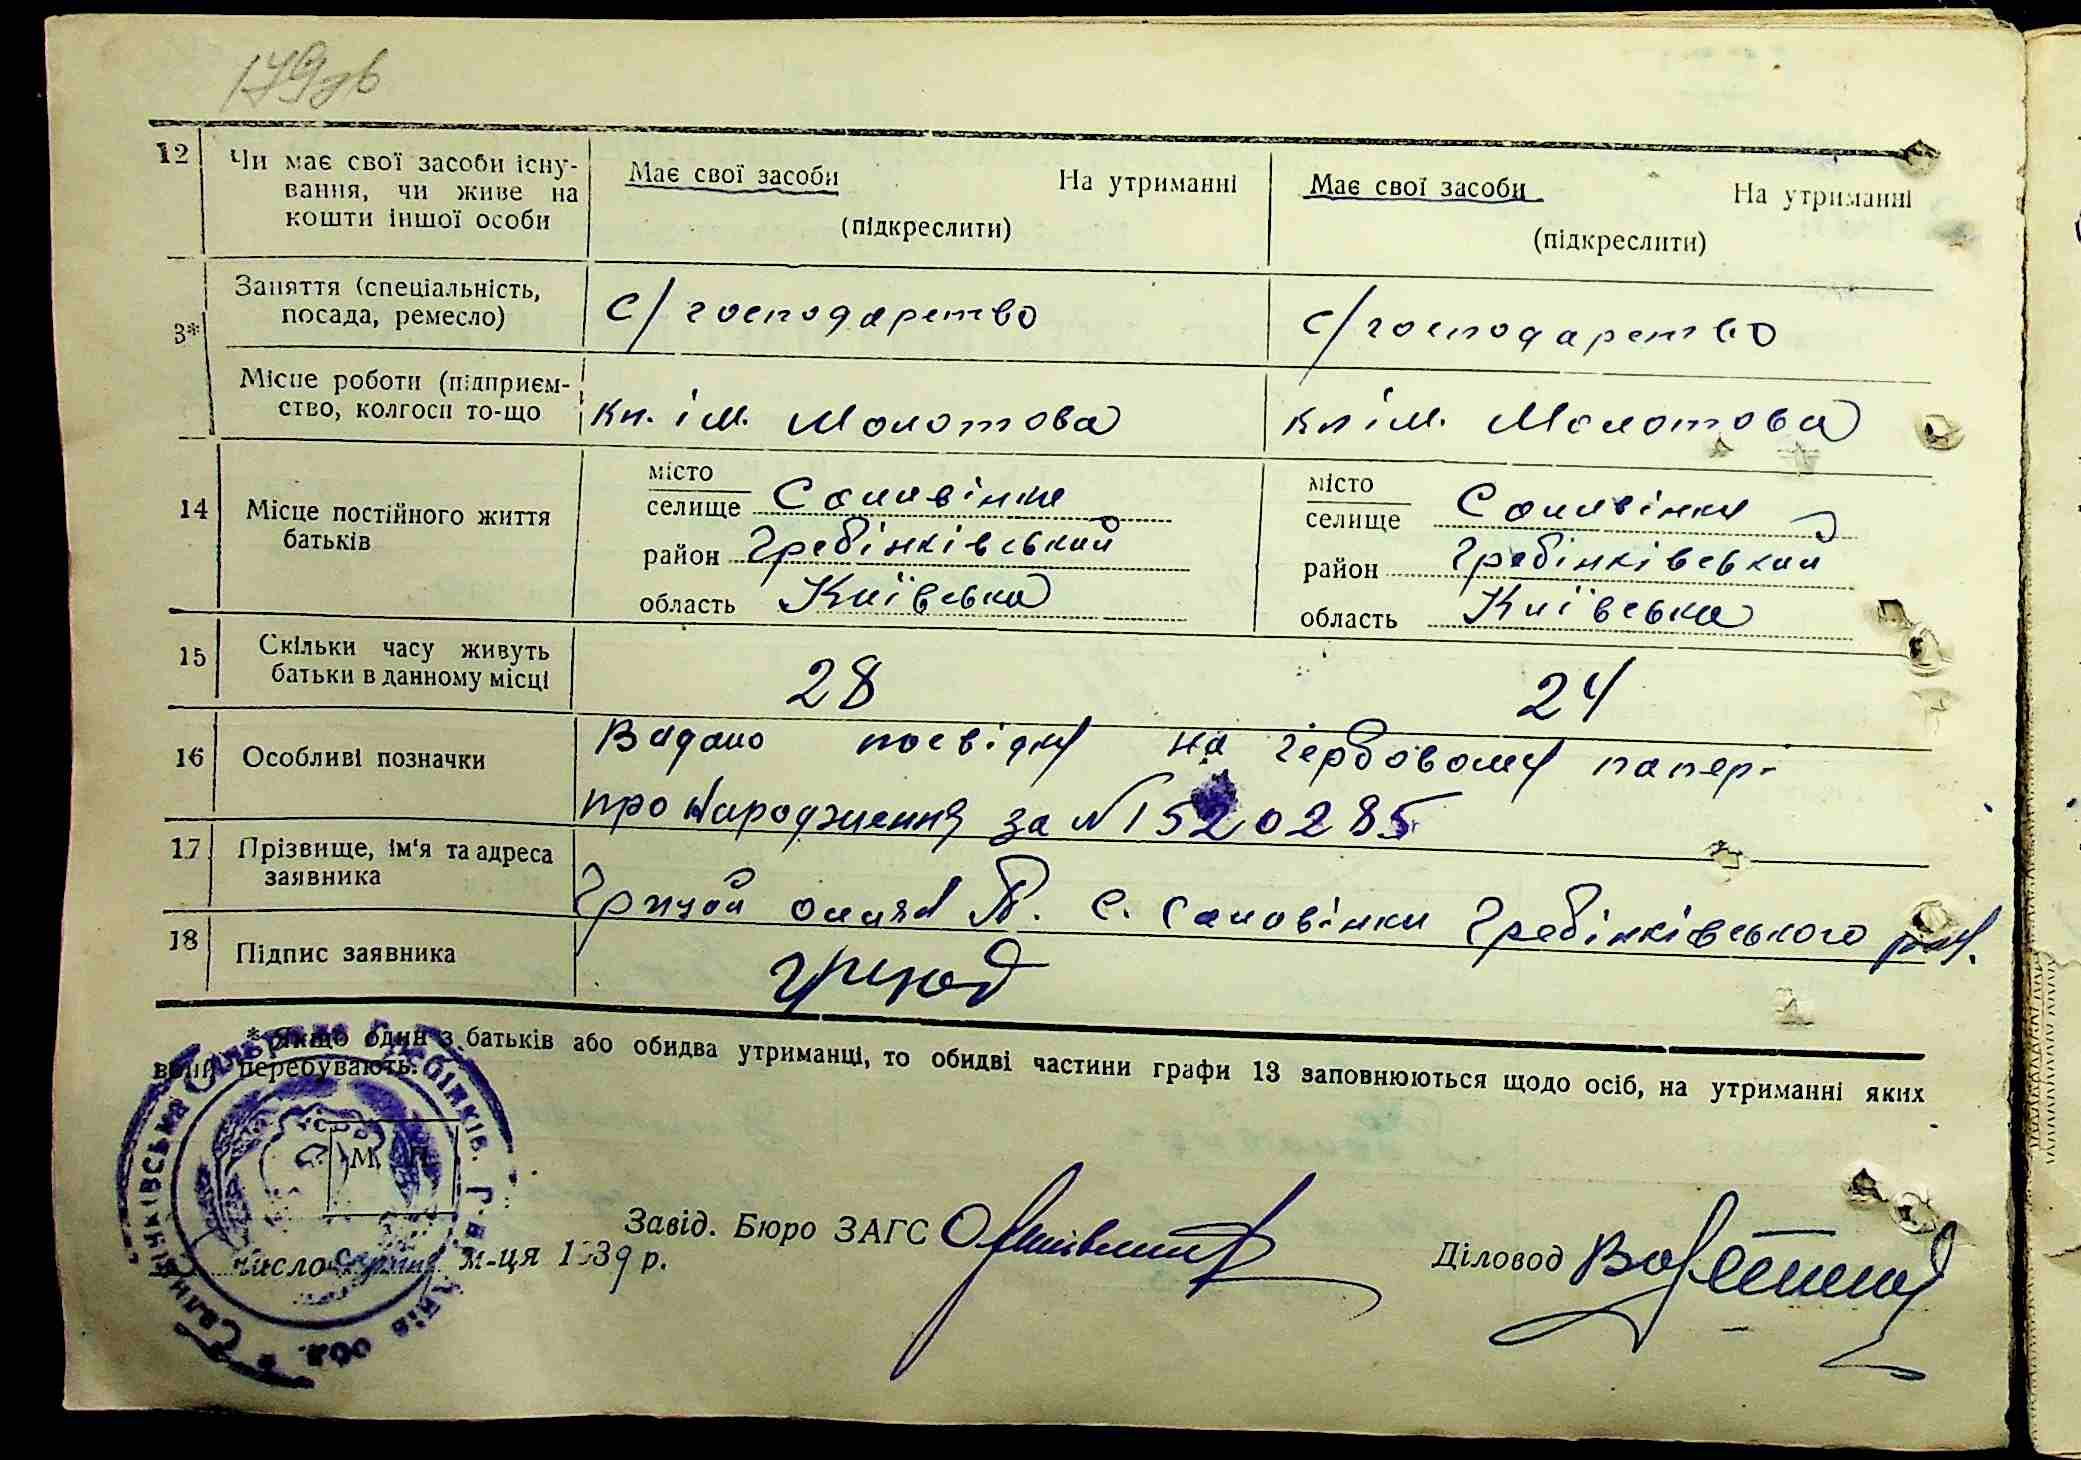 179зв
12 Чи має свої засоби існу-
вання, чи живе на
кошти іншої особи
Має свої засоби На утриманні
(підкреслити)
Має свої засоби На утриманні
(підкреслити)
3*
Заняття (спеціальність,
посада, ремесло)
С/господарство
С/господарство
Місце роботи (підприєм-
ство, колгосп то-що
кп. ім. Молотова
кп ім. Молотова
14 Місце постійного життя
батьків
місто
селище Саливінки
район Гребінківський
область Київська
місто
селище Саливінки
район Гребінківський
область Київська
15 Скільки часу живуть
батьки в данному місці
28
24
16 Особливі позначки
Видано посвідку на гербовому папері
про народження за № 1520285
17 Прізвище, ім'я та адреса
заявника
Грицай с. Саловінки Гребінківського
18 Підпис заявника
* Якщо один з батьків або обидва утриманці, то обидві частини графи 13 заповнюються щодо осіб, на утриманні яких
вони перебувають.
М. П.
Завід. Бюро ЗАГС
Діловод
число м-ця 1939 р.